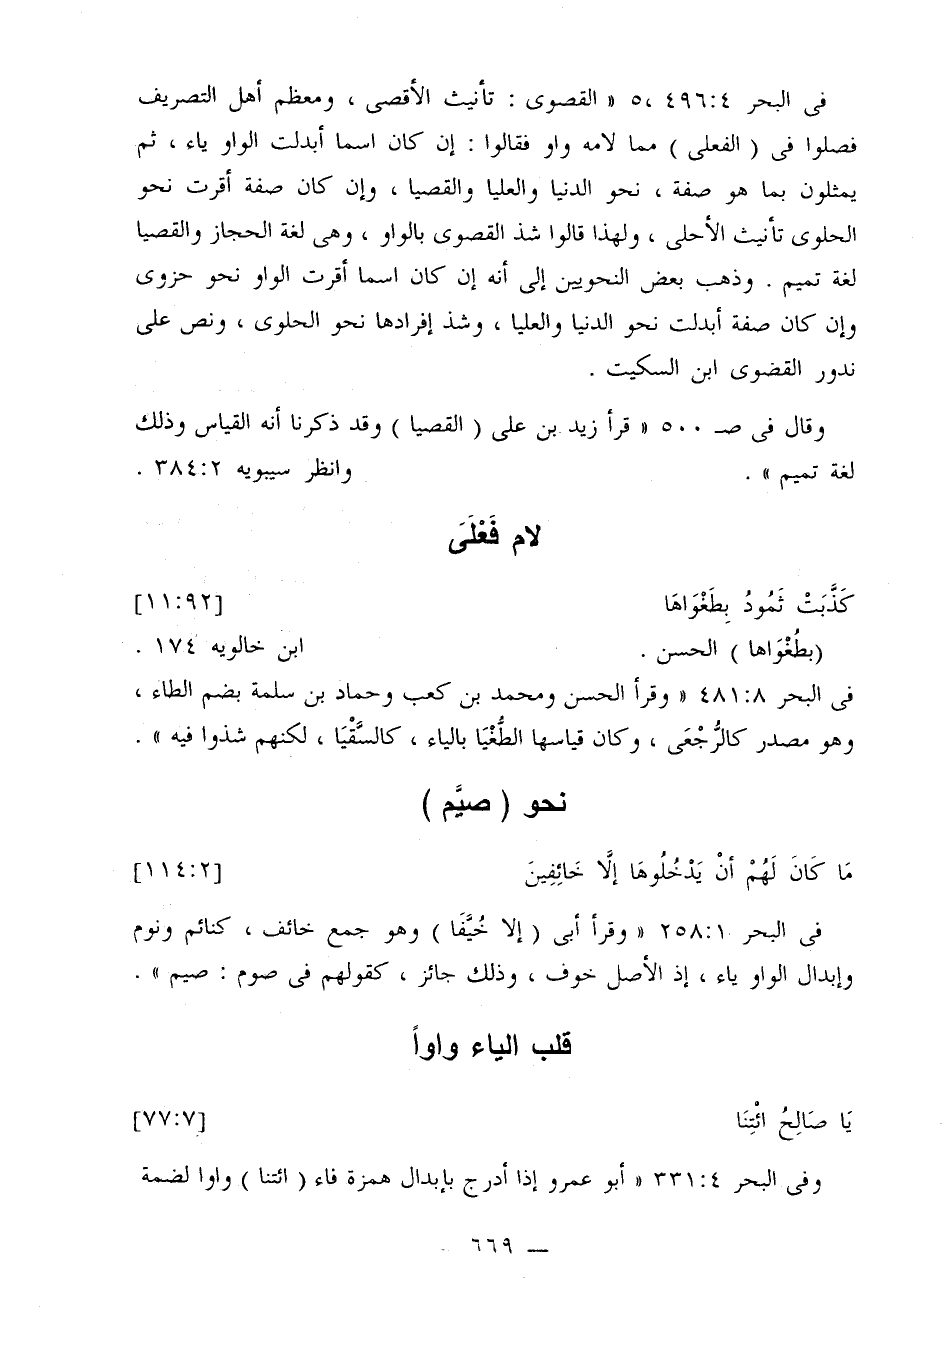 فى البحر ٤٩٦:٤ ،٥ « القصوى : تأنيث الأقصى ، ومعظم أهل التصريف
فصلوا فى ( الفعلى ) مما لامه واو فقالوا : إن كان اسما أبدلت الواو ياء ، ثم
يمثلون بما هو صفة ، نحو الدنيا والعليا والقصيا ، وإن كان صفة أقرت نحو
الحلوى تأنيث الأحلى ، ولهذا قالوا شذ القصوى بالواو ، وهى لغة الحجاز والقصيا
لغة تميم . وذهب بعض النحويين إلى أنه إن كان اسما أقرت الواو نحو حزوى
وإن كان صفة أبدلت نحو الدنيا والعليا ، وشذ إفرادها نحو الحلوى ، ونص على
ندور القضوى ابن السكيت .
وقال فى صـ ٥٠٠ « قرأ زيد بن على ( القصيا ) وقد ذكرنا أنه القياس وذلك
لغة تميم » . وانظر سيبويه ٣٨٤:٢ .
لام فَعْلَى
كَذَّبَتْ ثَمُودُ بِطَغْوَاهَا [١١:٩٢]
(بطُغْوَاها ) الحسن . ابن خالويه ١٧٤ .
فى البحر ٤٨١:٨ « وقرأ الحسن ومحمد بن كعب وحماد بن سلمة بضم الطاء ،
وهو مصدر كالرُّجْعَى ، وكان قياسها الطُّغْيَا بالياء ، كالسُّقْيَا ، لكنهم شذوا فيه » .
نحو ( صيَّم )
مَا كَانَ لَهُمْ أنْ يَدْخُلُوهَا إلَّا خَائِفِينَ [١١٤:٢]
فى البحر ٢٥٨:١ « وقرأ أبى ( إلا خُيَّفَا ) وهو جمع خائف ، كنائم ونوم
وإبدال الواو ياء ، إذ الأصل خوف ، وذلك جائز ، كقولهم فى صوم : صيم » .
قلب الياء واواً
يَا صَالِحُ ائْتِنَا [٧٧:٧]
وفى البحر ٣٣١:٤ « أبو عمرو إذا أدرج بإبدال همزة فاء ( ائتنا ) واوا لضمة
— ٦٦٩